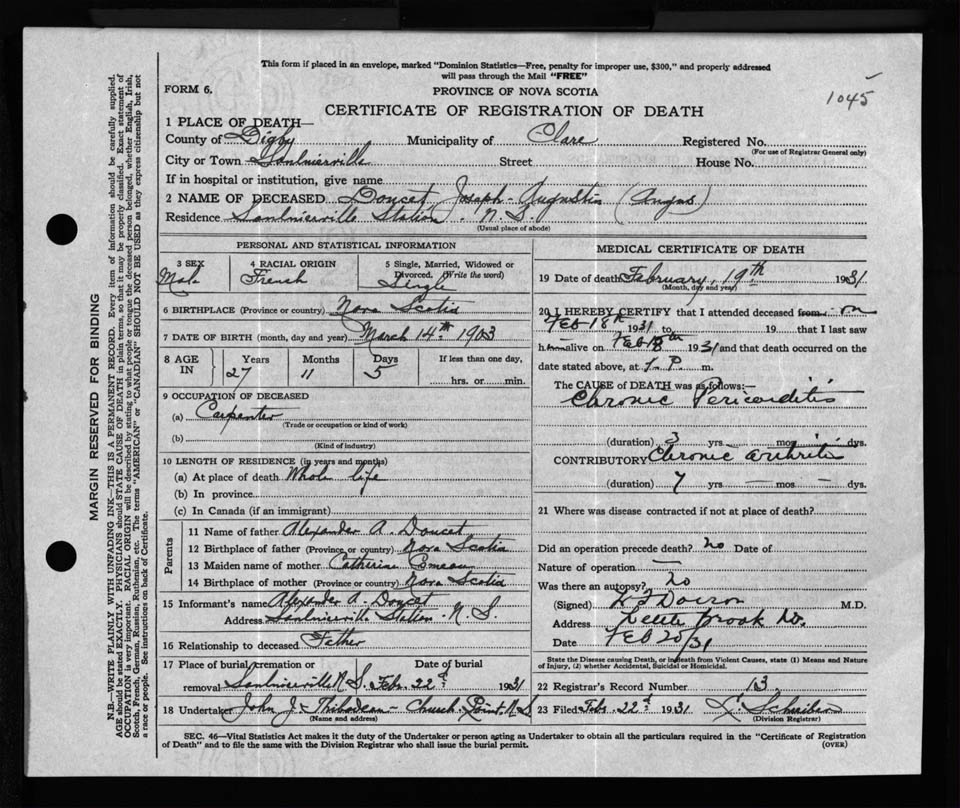 This form if placed in an envelope, marked "Dominion Statistics—Free, penalty for improper use, $300," and properly addressed
will pass through the Mail "FREE"
FORM 6.
PROVINCE OF NOVA SCOTIA
1045
CERTIFICATE OF REGISTRATION OF DEATH
1 PLACE OF DEATH—
County of Digby Municipality of Clare Registered No.
(For use of Registrar General only)
City or Town Saulnierville Street House No.
If in hospital or institution, give name
2 NAME OF DECEASED Doucet, Joseph-Augustin (Angus)
Residence Saulnierville Station, N.S.
(Usual place of abode)
PERSONAL AND STATISTICAL INFORMATION
3 SEX 4 RACIAL ORIGIN 5 Single, Married, Widowed or
Divorced. (Write the word)
Male French Single
6 BIRTHPLACE (Province or country) Nova Scotia
7 DATE OF BIRTH (month, day and year) March 14th 1903
8 AGE IN Years Months Days If less than one day,
27 11 5 hrs. or min.
9 OCCUPATION OF DECEASED
(a) Carpenter
(Trade or occupation or kind of work)
(b)
(Kind of industry)
10 LENGTH OF RESIDENCE (in years and months)
(a) At place of death Whole life
(b) In province
(c) In Canada (if an immigrant)
Parents
11 Name of father Alexander A. Doucet
12 Birthplace of father (Province or country) Nova Scotia
13 Maiden name of mother Catherine Comeau
14 Birthplace of mother (Province or country) Nova Scotia
15 Informant's name Alexander A. Doucet
Address Saulnierville Station - N.S.
16 Relationship to deceased Father
17 Place of burial, cremation or Date of burial
removal Saulnierville N.S. Feb. 22d 1931
18 Undertaker John J. Thibodeau - Church Point, N.S.
(Name and address)
MEDICAL CERTIFICATE OF DEATH
19 Date of death February, 19th 1931
(Month, day and year)
20 I HEREBY CERTIFY that I attended deceased from on
Feb 18th 1931 to 19 that I last saw
h im alive on Feb 18th 1931 and that death occurred on the
date stated above, at P. m.
The CAUSE of DEATH was as follows:—
Chronic Pericarditis
(duration) 3 yrs. — mos. — dys.
CONTRIBUTORY Chronic arthritis
(duration) 7 yrs. — mos. — dys.
21 Where was disease contracted if not at place of death?
Did an operation precede death? No Date of
Nature of operation —
Was there an autopsy? No
(Signed) Doiron M.D.
Address Little Brook
Date FEB 20/31
State the Disease causing Death, or in death from Violent Causes, state (1) Means and Nature
of Injury, (2) whether Accidental, Suicidal or Homicidal.
22 Registrar's Record Number 13
23 Filed Feb. 22d 1931
(Division Registrar)
SEC. 46—Vital Statistics Act makes it the duty of the Undertaker or person acting as Undertaker to obtain all the particulars required in the "Certificate of Registration
of Death" and to file the same with the Division Registrar who shall issue the burial permit.
(OVER)
MARGIN RESERVED FOR BINDING
N.B.—WRITE PLAINLY WITH UNFADING INK—THIS IS A PERMANENT RECORD. Every item of information should be carefully supplied.
AGE should be stated EXACTLY. PHYSICIANS should STATE CAUSE OF DEATH in plain terms, so that it may be properly classified. Exact statement of
OCCUPATION is very important. RACIAL ORIGIN will be described by stating to what people or tongue the deceased person belonged, whether English, Irish,
Scotch, French, German, Russian, Ruthenian, etc. The terms "AMERICAN" or "CANADIAN" SHOULD NOT BE USED as they express citizenship but not
a race or people. See instructions on back of Certificate.